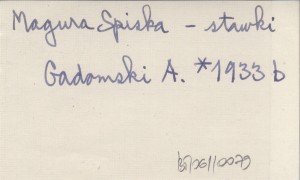 Magura Spiska - stawki
Gadomski A. *1933 b
B/06/10079